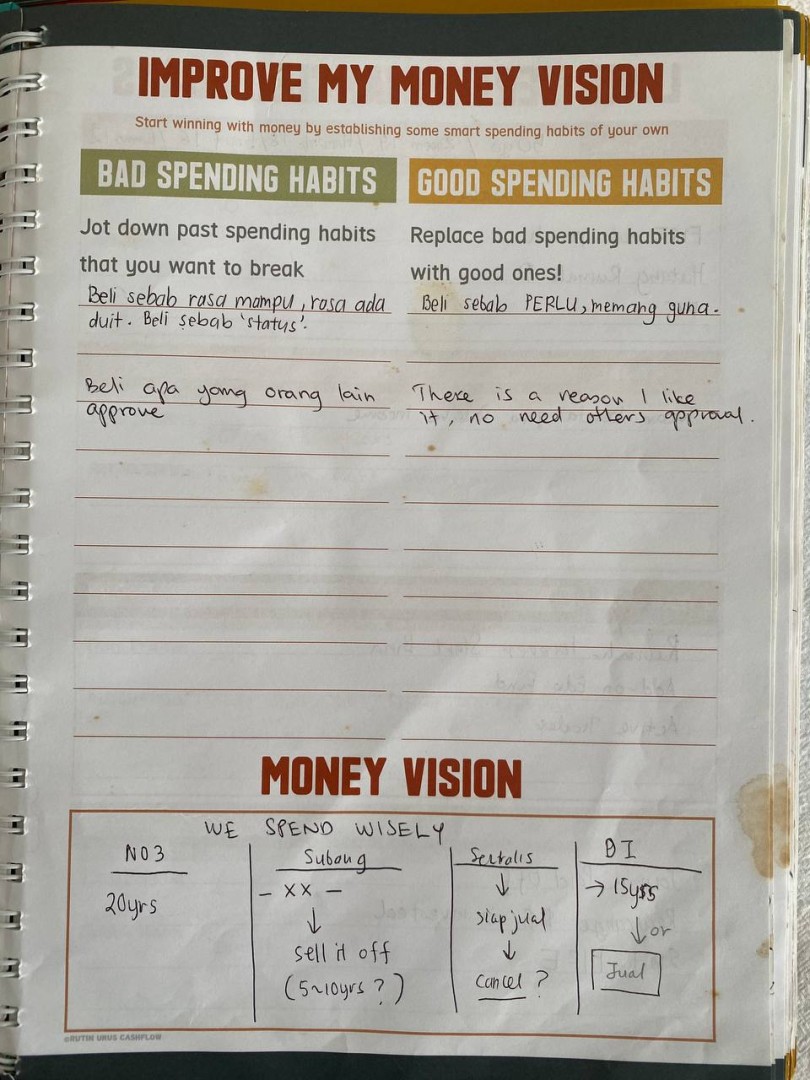 IMPROVE MY MONEY VISION
Start winning with money by establishing some smart spending habits of your own
BAD SPENDING HABITS
Jot down past spending habits
that you want to break
Beli sebab rasa mampu, rasa ada
duit. Beli sebab 'status'.
Beli apa yang orang lain
approve
GOOD SPENDING HABITS
Replace bad spending habits
with good ones!
Beli sebab PERLU, memang guna.
There is a reason I like
it, no need others approval.
MONEY VISION
WE SPEND WISELY
NO3
20yrs
Subang
- XX -
↓
sell it off
(5~10yrs ?)
↓
siap jual
↓
cancel ?
→ 15yrs
↓ or
Jual
©RUTIN URUS CASHFLOW